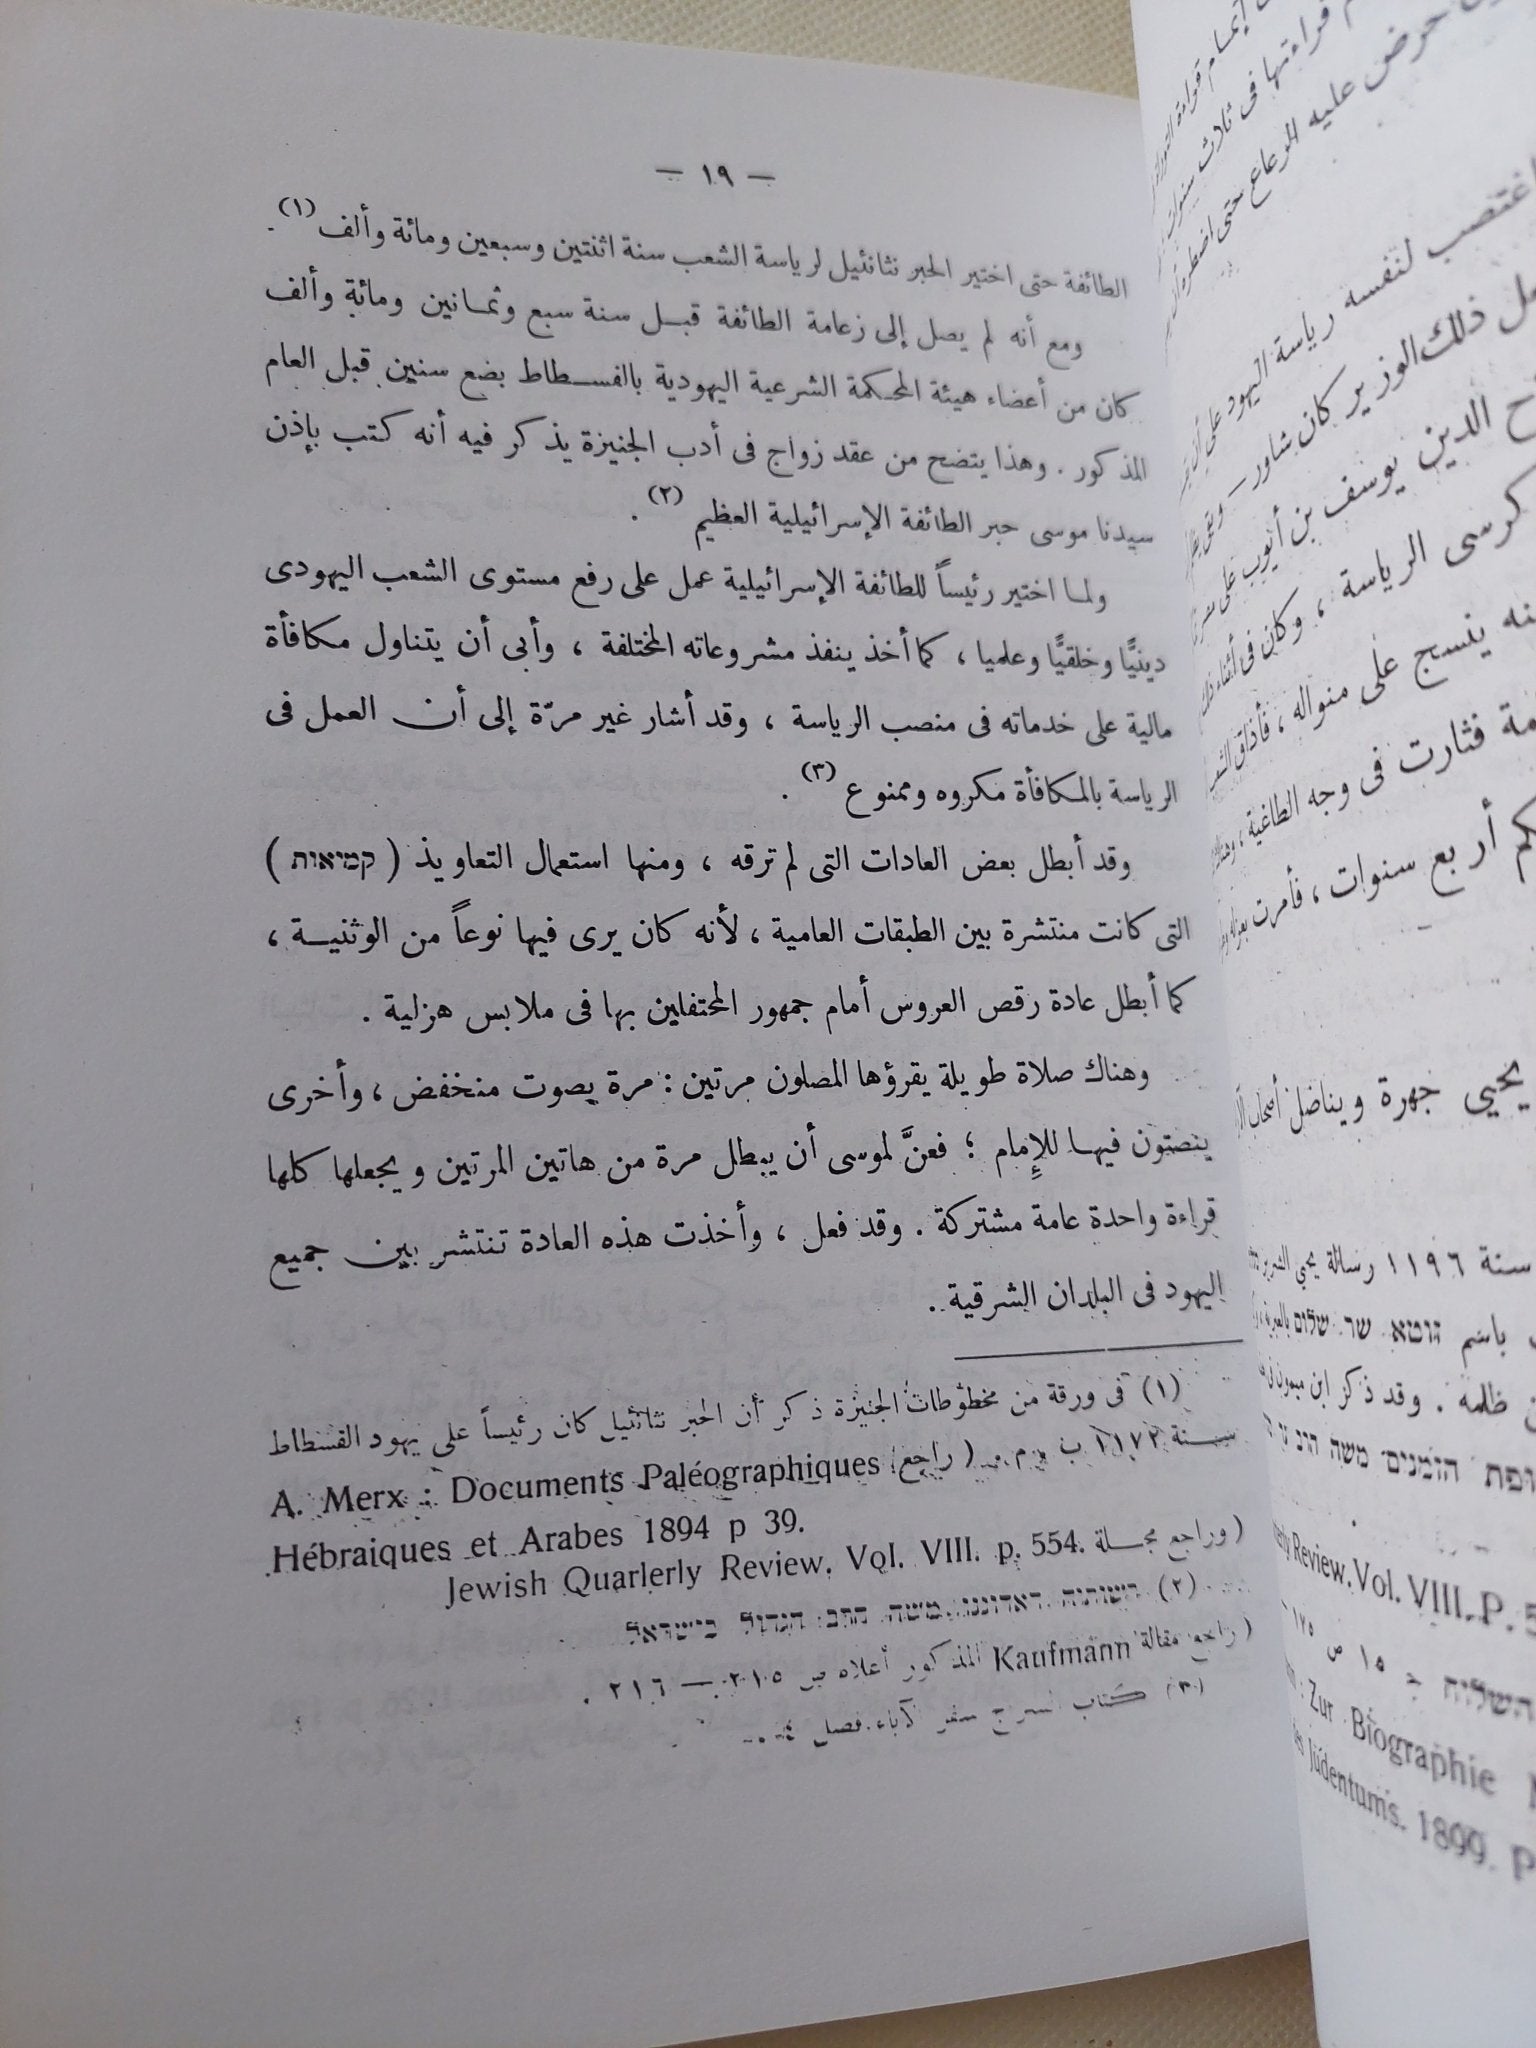 — ١٩ —
الطائفة حتى اختير الحبر نثانئيل لرياسة الشعب سنة اثنتين وسبعين ومائة وألف (١) .
ومع أنه لم يصل إلى زعامة الطائفة قبل سنة سبع وثمانين ومائة وألف
كان من أعضاء هيئة المحكمة الشرعية اليهودية بالفسطاط بضع سنين قبل العام
المذكور . وهذا يتضح من عقد زواج فى أدب الجنيزة يذكر فيه أنه كتب بإذن
سيدنا موسى حبر الطائفة الإسرائيلية العظيم (٢) .
ولما اختير رئيساً للطائفة الإسرائيلية عمل على رفع مستوى الشعب اليهودى
دينيًّا وخلقيًّا وعلميا ، كما أخذ ينفذ مشروعاته المختلفة ، وأبى أن يتناول مكافأة
مالية على خدماته فى منصب الرياسة ، وقد أشار غير مرّة إلى أن العمل فى
الرياسة بالمكافأة مكروه وممنوع (٣) .
وقد أبطل بعض العادات التى لم ترقه ، ومنها استعمال التعاويذ ( קמיאות )
التى كانت منتشرة بين الطبقات العامية ، لأنه كان يرى فيها نوعاً من الوثنية ،
كما أبطل عادة رقص العروس أمام جمهور المحتفلين بها فى ملابس هزلية .
وهناك صلاة طويلة يقرؤها المصلون مرتين : مرة بصوت منخفض ، وأخرى
ينصتون فيها للإِمام ؛ فعنَّ لموسى أن يبطل مرة من هاتين المرتين ويجعلها كلها
قراءة واحدة عامة مشتركة . وقد فعل ، وأخذت هذه العادة تنتشر بين جميع
اليهود فى البلدان الشرقية .
(١) فى ورقة من مخطوطات الجنيزة ذكر أن الحبر نثانئيل كان رئيساً على يهود الفسطاط
سنة ١١٧٢ ب . م . ( راجع A. Merx : Documents Paléographiques
Hébraiques et Arabes 1894 p 39.
( وراجع مجلة Jewish Quarlerly Review. Vol. VIII. p. 554.
(٢) רשותיה דאדוננו משה הרב הגדול בישראל
( راجع مقالة Kaufmann المذكور أعلاه ص ٢١٥ — ٢١٦ .
(٣) كتاب السرج سفر الآباء فصل
إتمام قراءة
قراءتها فى ثلاث سنوات
حرض عليه الرعاع حتى اضطره
اغتصب لنفسه رياسة اليهود على
ذلك الوزير كان شاور — وبقى
الدين يوسف بن أيوب على
كرسى الرياسة ، وكان فى أثناء
ينسج على منواله ، فأذاق الشعب
فثارت فى وجه الطاغية ،
أربع سنوات ، فأمرت بعزله
يحيى جهرة ويناضل أصحاب
سنة ١١٩٦ رسالة يحيى الشرير
باسم זוטא שר שלום بالعبرية
ظلمه . وقد ذكر ابن ميمون فى
הזמנים משה הרב
Review. Vol. VIII. P. 5
השלוח ج ١٥ ص ١٧٥
Zur Biographie
Judentums. 1899. P